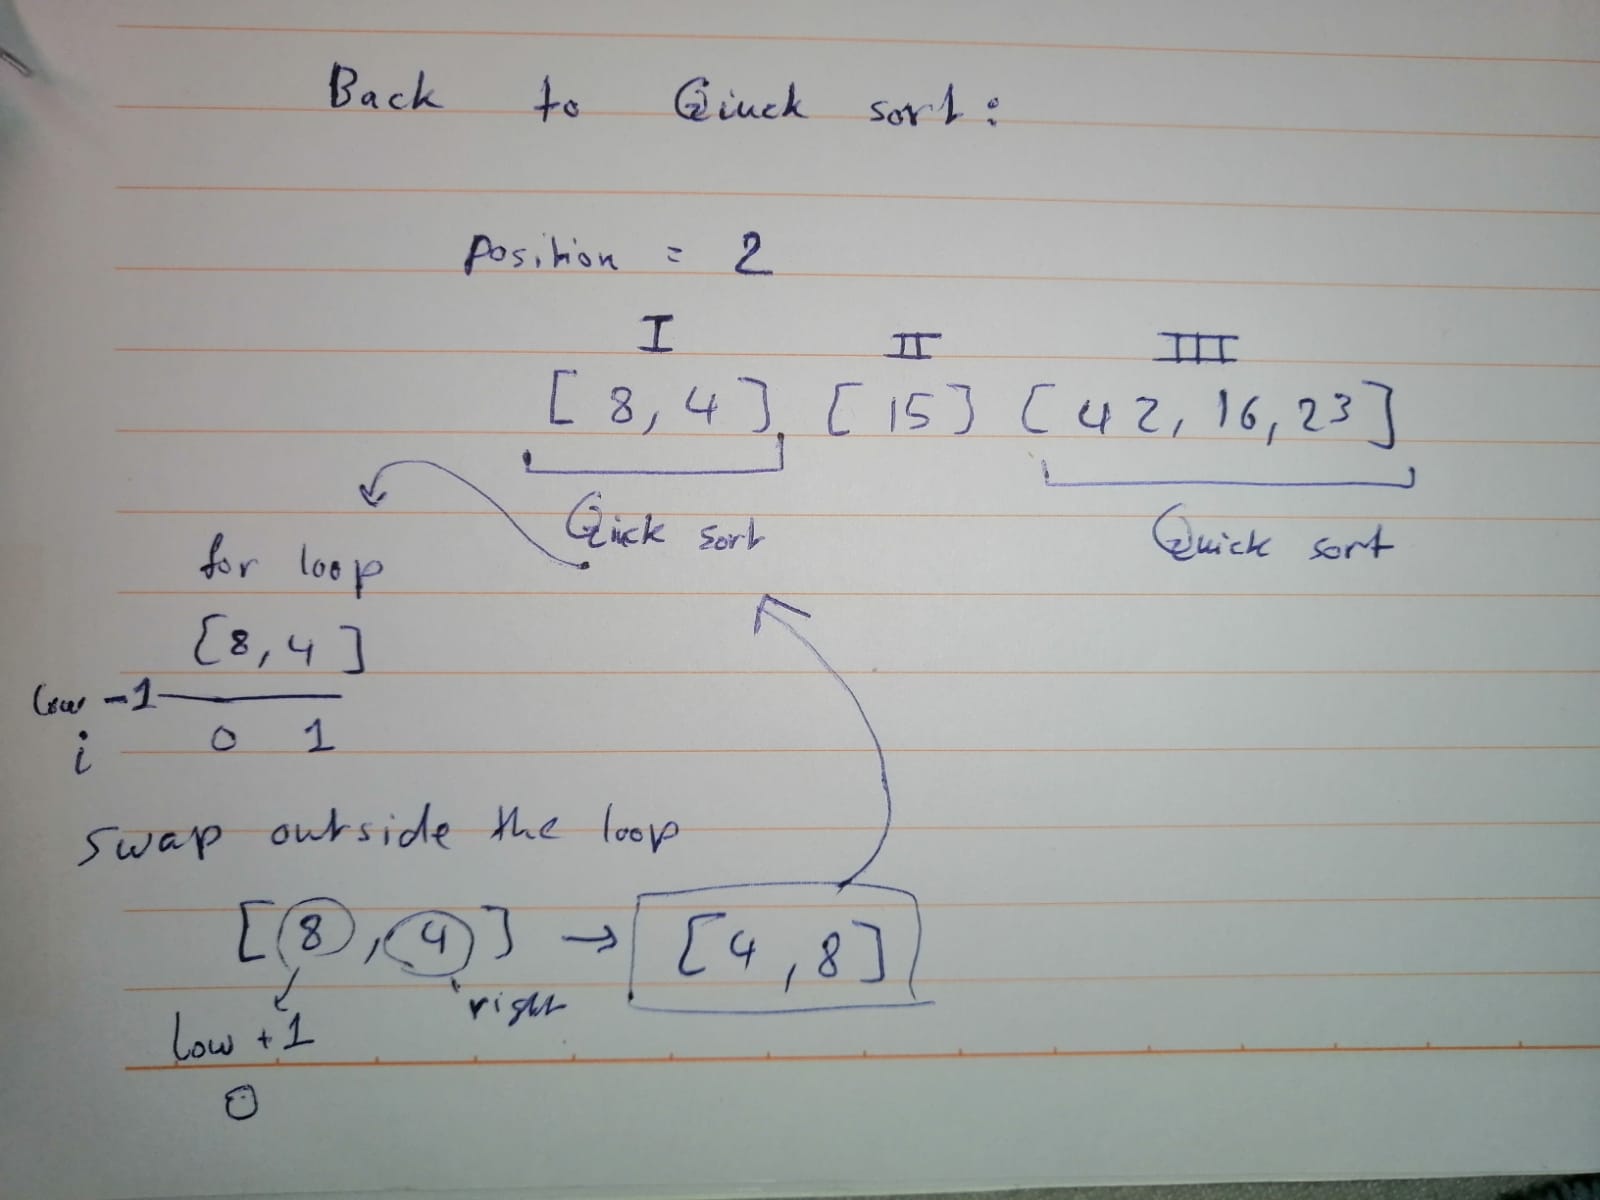 Back to Qiuck sort:
position = 2
I II III
[ 8, 4 ] [ 15 ] [ 42, 16, 23 ]
Qiick sort Quick sort
for loop
[8, 4 ]
low -1
i 0 1
swap outside the loop
[ 8, 4 ] → [ 4, 8 ]
right
low + 1
0